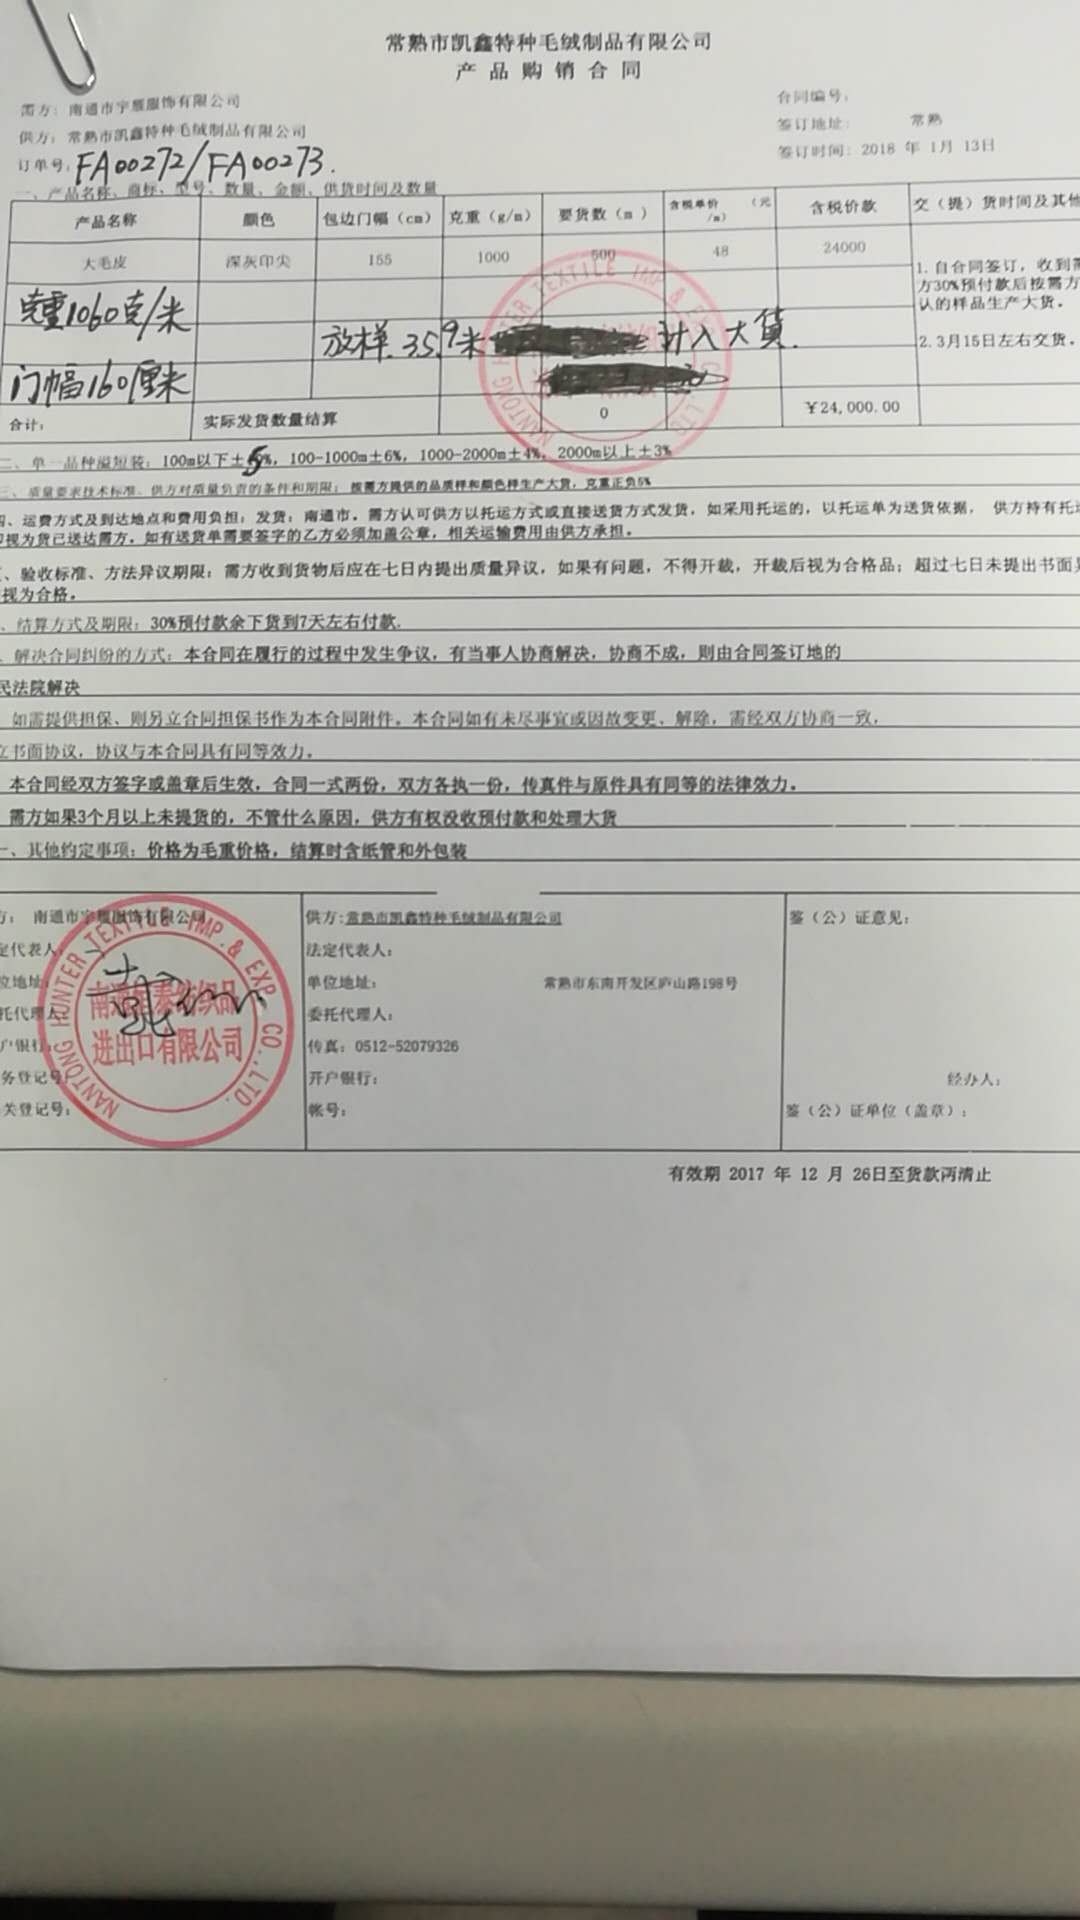 常熟市凯鑫特种毛绒制品有限公司
产品购销合同
需方：南通市宇雁服饰有限公司
合同编号：
供方：常熟市凯鑫特种毛绒制品有限公司
签订地址： 常熟
订单号：FA00272/FA00273.
签订时间：2018 年 1月 13日
一、产品名称、商标、型号、数量、金额、供货时间及数量
产品名称 颜色 包边门幅（cm） 克重（g/m） 要货数（m ） 含税单价 （元/m） 含税价款 交（提）货时间及其他
大毛皮 深灰印尖 155 1000 500 48 24000
1.自合同签订，收到需
方30%预付款后按需方
认的样品生产大货。
2.3月15日左右交货。
克重1060克/米
放样 35.9米 计入大货.
门幅160厘米
合计： 实际发货数量结算 0 ￥24,000.00
二、单一品种溢短装：100m以下±5%，100-1000m±6%，1000-2000m±4%，2000m以上±3%
三、质量要求技术标准、供方对质量负责的条件和期限：按需方提供的品质样和颜色样生产大货，克重正负5%
四、运费方式及到达地点和费用负担：发货：南通市。需方认可供方以托运方式或直接送货方式发货，如采用托运的，以托运单为送货依据， 供方持有托运
视为货已送达需方。如有送货单需要签字的乙方必须加盖公章，相关运输费用由供方承担。
、验收标准、方法异议期限：需方收到货物后应在七日内提出质量异议，如果有问题，不得开裁，开裁后视为合格品；超过七日未提出书面
视为合格。
、结算方式及期限：30%预付款余下货到7天左右付款.
、解决合同纠纷的方式：本合同在履行的过程中发生争议，有当事人协商解决，协商不成，则由合同签订地的
民法院解决
如需提供担保、则另立合同担保书作为本合同附件。本合同如有未尽事宜或因故变更、解除，需经双方协商一致，
立书面协议，协议与本合同具有同等效力。
本合同经双方签字或盖章后生效，合同一式两份，双方各执一份，传真件与原件具有同等的法律效力。
需方如果3个月以上未提货的，不管什么原因，供方有权没收预付款和处理大货
一、其他约定事项：价格为毛重价格，结算时含纸管和外包装
方： 南通市宇雁服饰有限公司
定代表人：
位地址：
托代理人：
户银行：
务登记号：
关登记号：
NANTONG HUNTER TEXTILE IMP.& EXP CO.,LTD.
南通恒泰纺织品
进出口有限公司
供方：常熟市凯鑫特种毛绒制品有限公司
法定代表人：
单位地址： 常熟市东南开发区庐山路198号
委托代理人：
传真：0512-52079326
开户银行：
帐号：
签（公）证意见：
经办人：
签（公）证单位（盖章）：
有效期 2017 年 12 月 26日至货款两清止